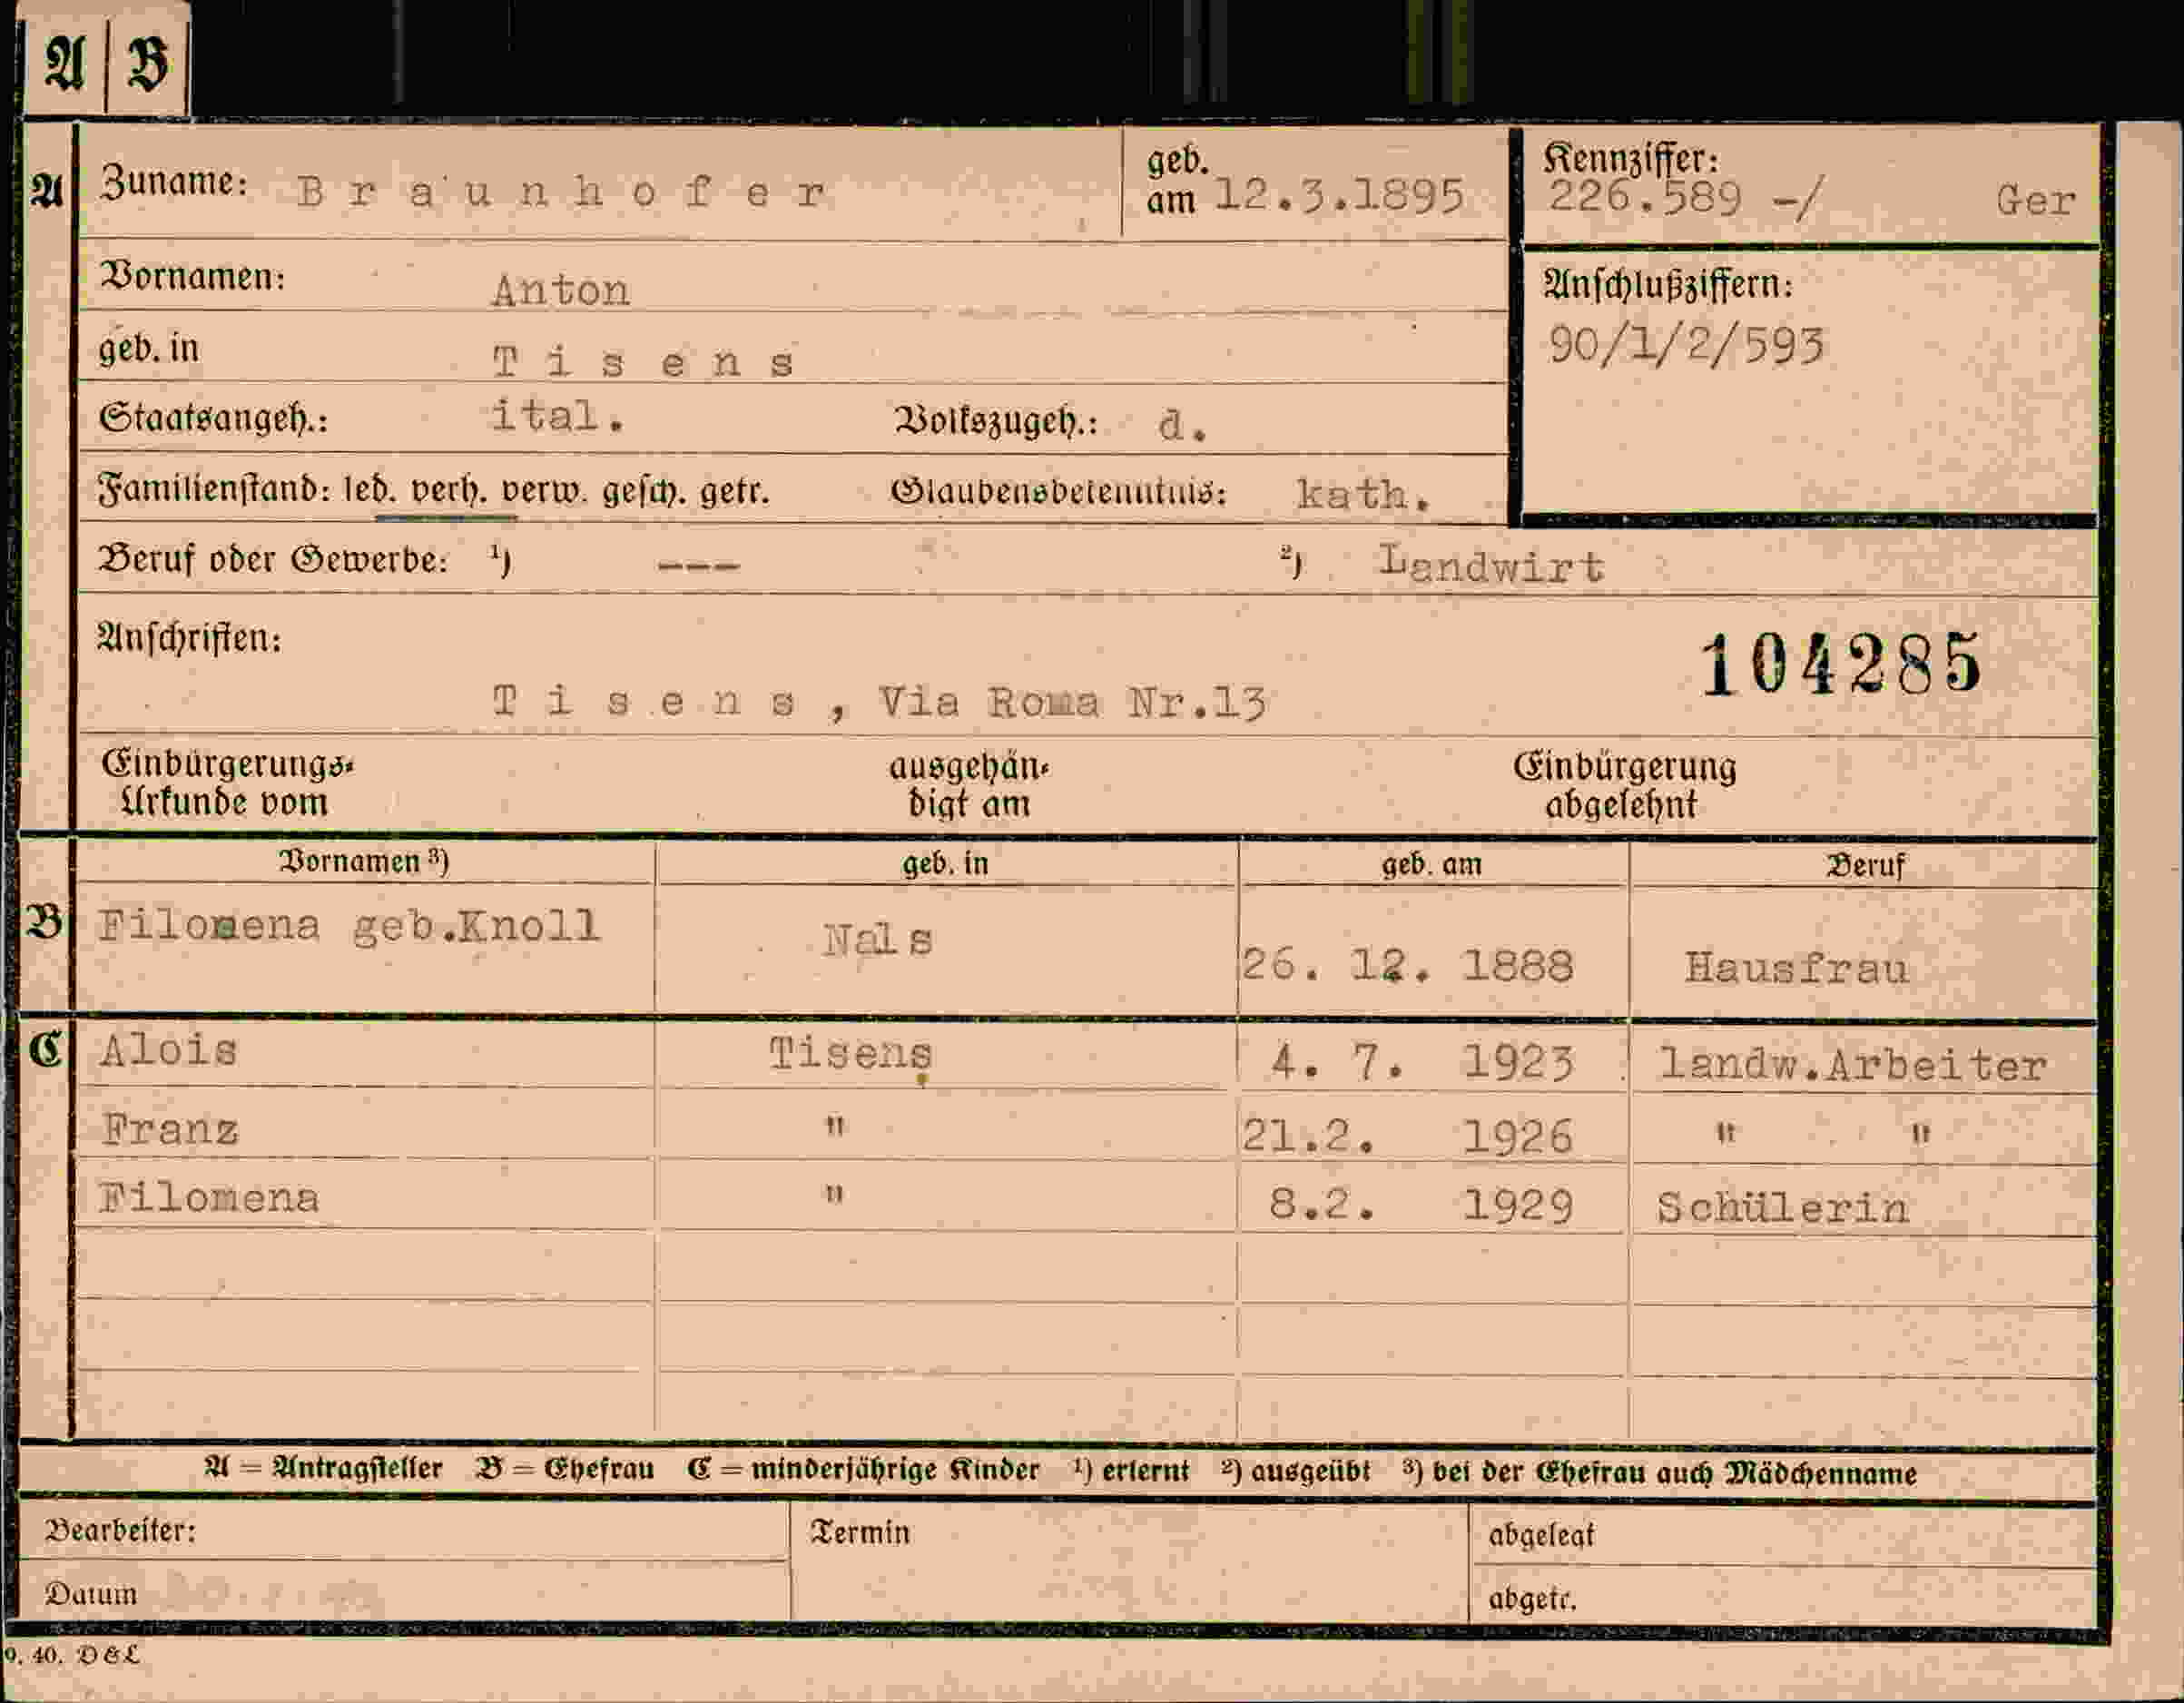 A B
A Zuname: Braunhofer geb. am 12.3.1895 Kennziffer: 226.589 -/ Ger
Vornamen: Anton Anschlußziffern:
geb. in Tisens 90/1/2/593
Staatsangeh.: ital. Volkszugeh.: d.
Familienstand: led. verh. verw. gesch. getr. Glaubensbekenntnis: kath.
Beruf oder Gewerbe: 1) --- 2) Landwirt
Anschriften: 104285
Tisens, Via Roma Nr.13
Einbürgerungs- ausgehän- Einbürgerung
Urkunde vom digt am abgelehnt
Vornamen 3) geb. in geb. am Beruf
B Filomena geb.Knoll Nals 26. 12. 1888 Hausfrau
C Alois Tisens 4. 7. 1923 landw.Arbeiter
Franz " 21.2. 1926 " "
Filomena " 8.2. 1929 Schülerin
A = Antragsteller B = Ehefrau C = minderjährige Kinder 1) erlernt 2) ausgeübt 3) bei der Ehefrau auch Mädchenname
Bearbeiter: Termin abgelegt
Datum abgetr.
9. 40. D&L